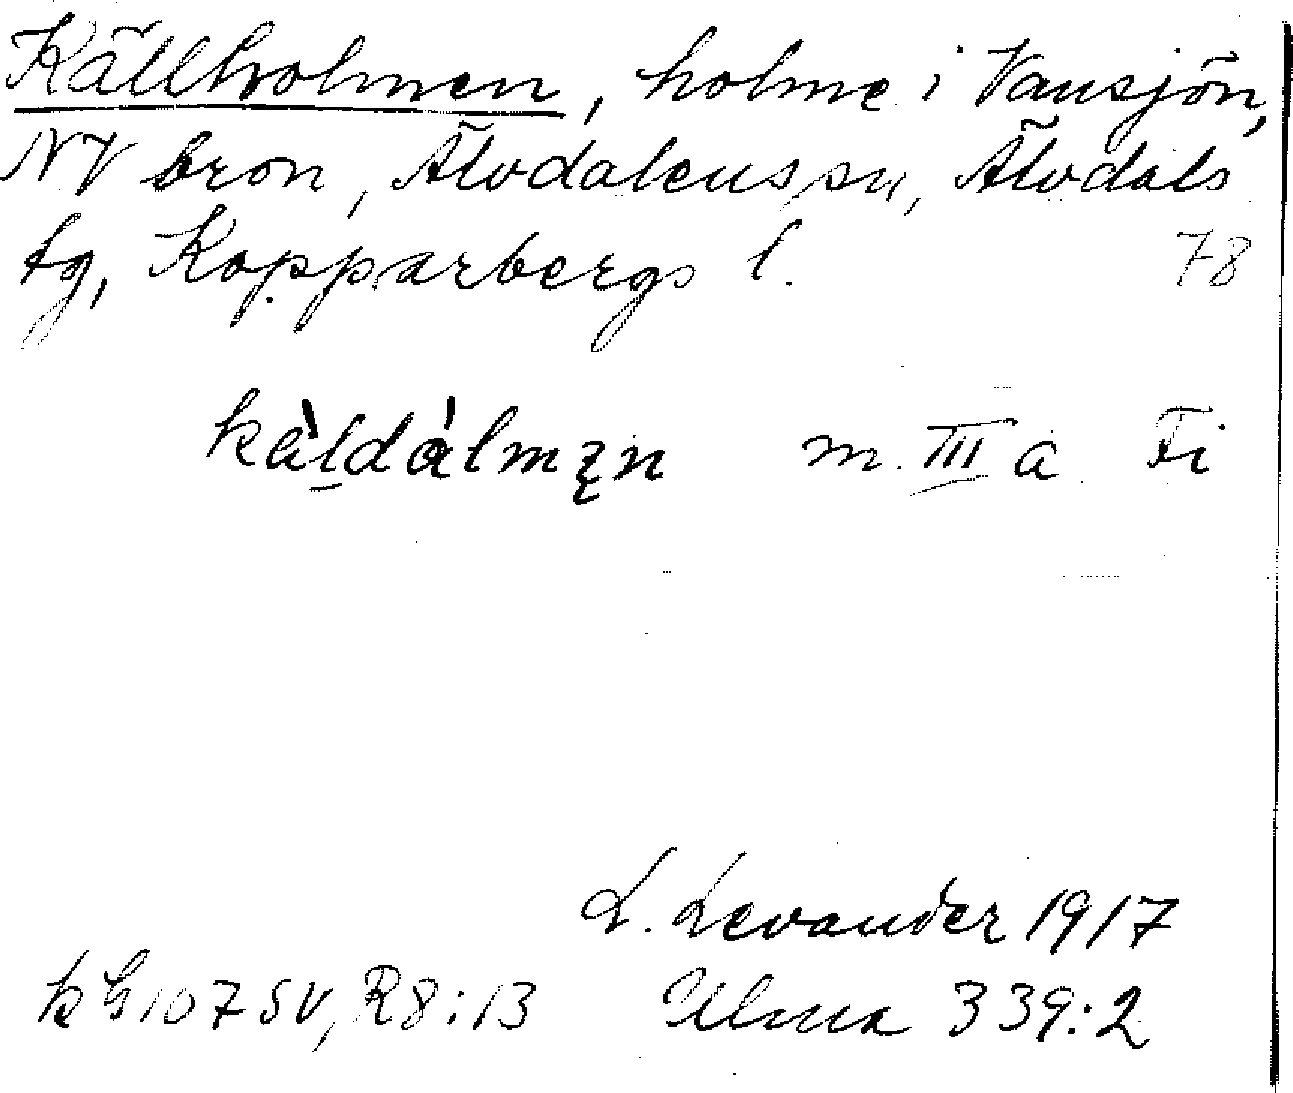 Källholmen, holme i Vansjön,
NV bron, Älvdalens sn, Älvdals
tg, Kopparbergs l. 78
kàl̠dálmęn m. III a Fi
L. Levander 1917
k G 107 SV, R8:13 Ulma 339:2